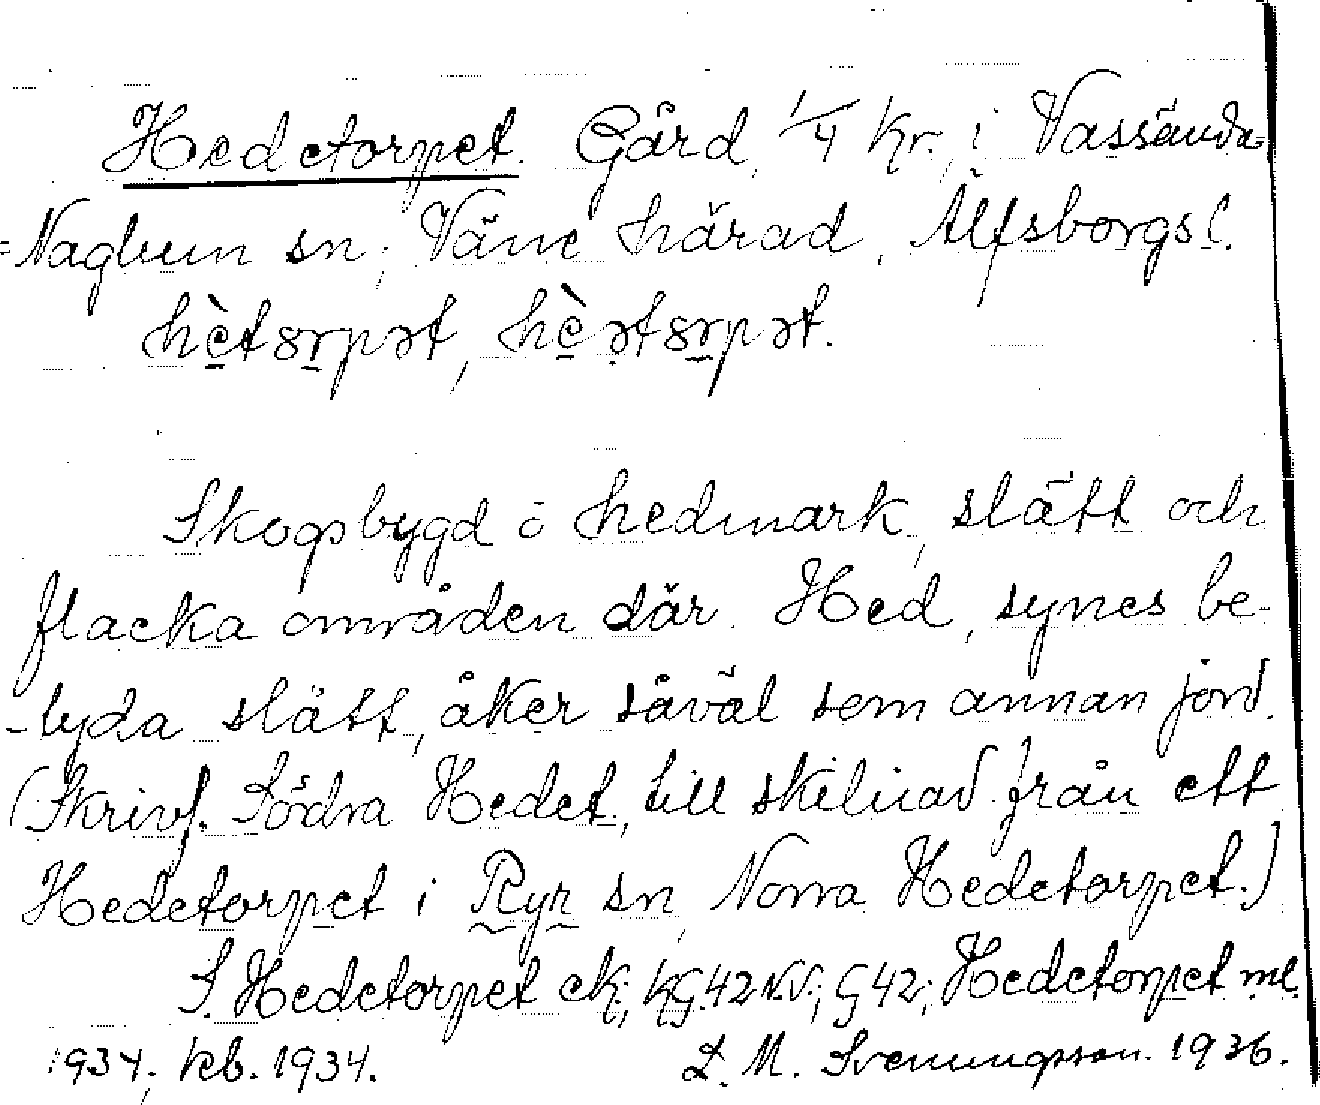 Hedetorpet. Gård, 1/4 kr., i Vassända-
=Naglum sn, Väne härad, Älfsborgs l.
hètsrpət, hèətsrpət.
Skogsbygd o hedmark, slätt och
flacka områden där. Hed, synes be-
-tyda slätt, åker såväl som annan jord.
(Skrivs. Södra Hedet, till skilnad från ett
Hedetorpet i Ryr sn, Norra Hedetorpet.)
S. Hedetorpet ek; kG.42 N.V.; G 42; Hedetorpet ml.
1934; kb. 1934. L. M. Svenungsson. 1936.